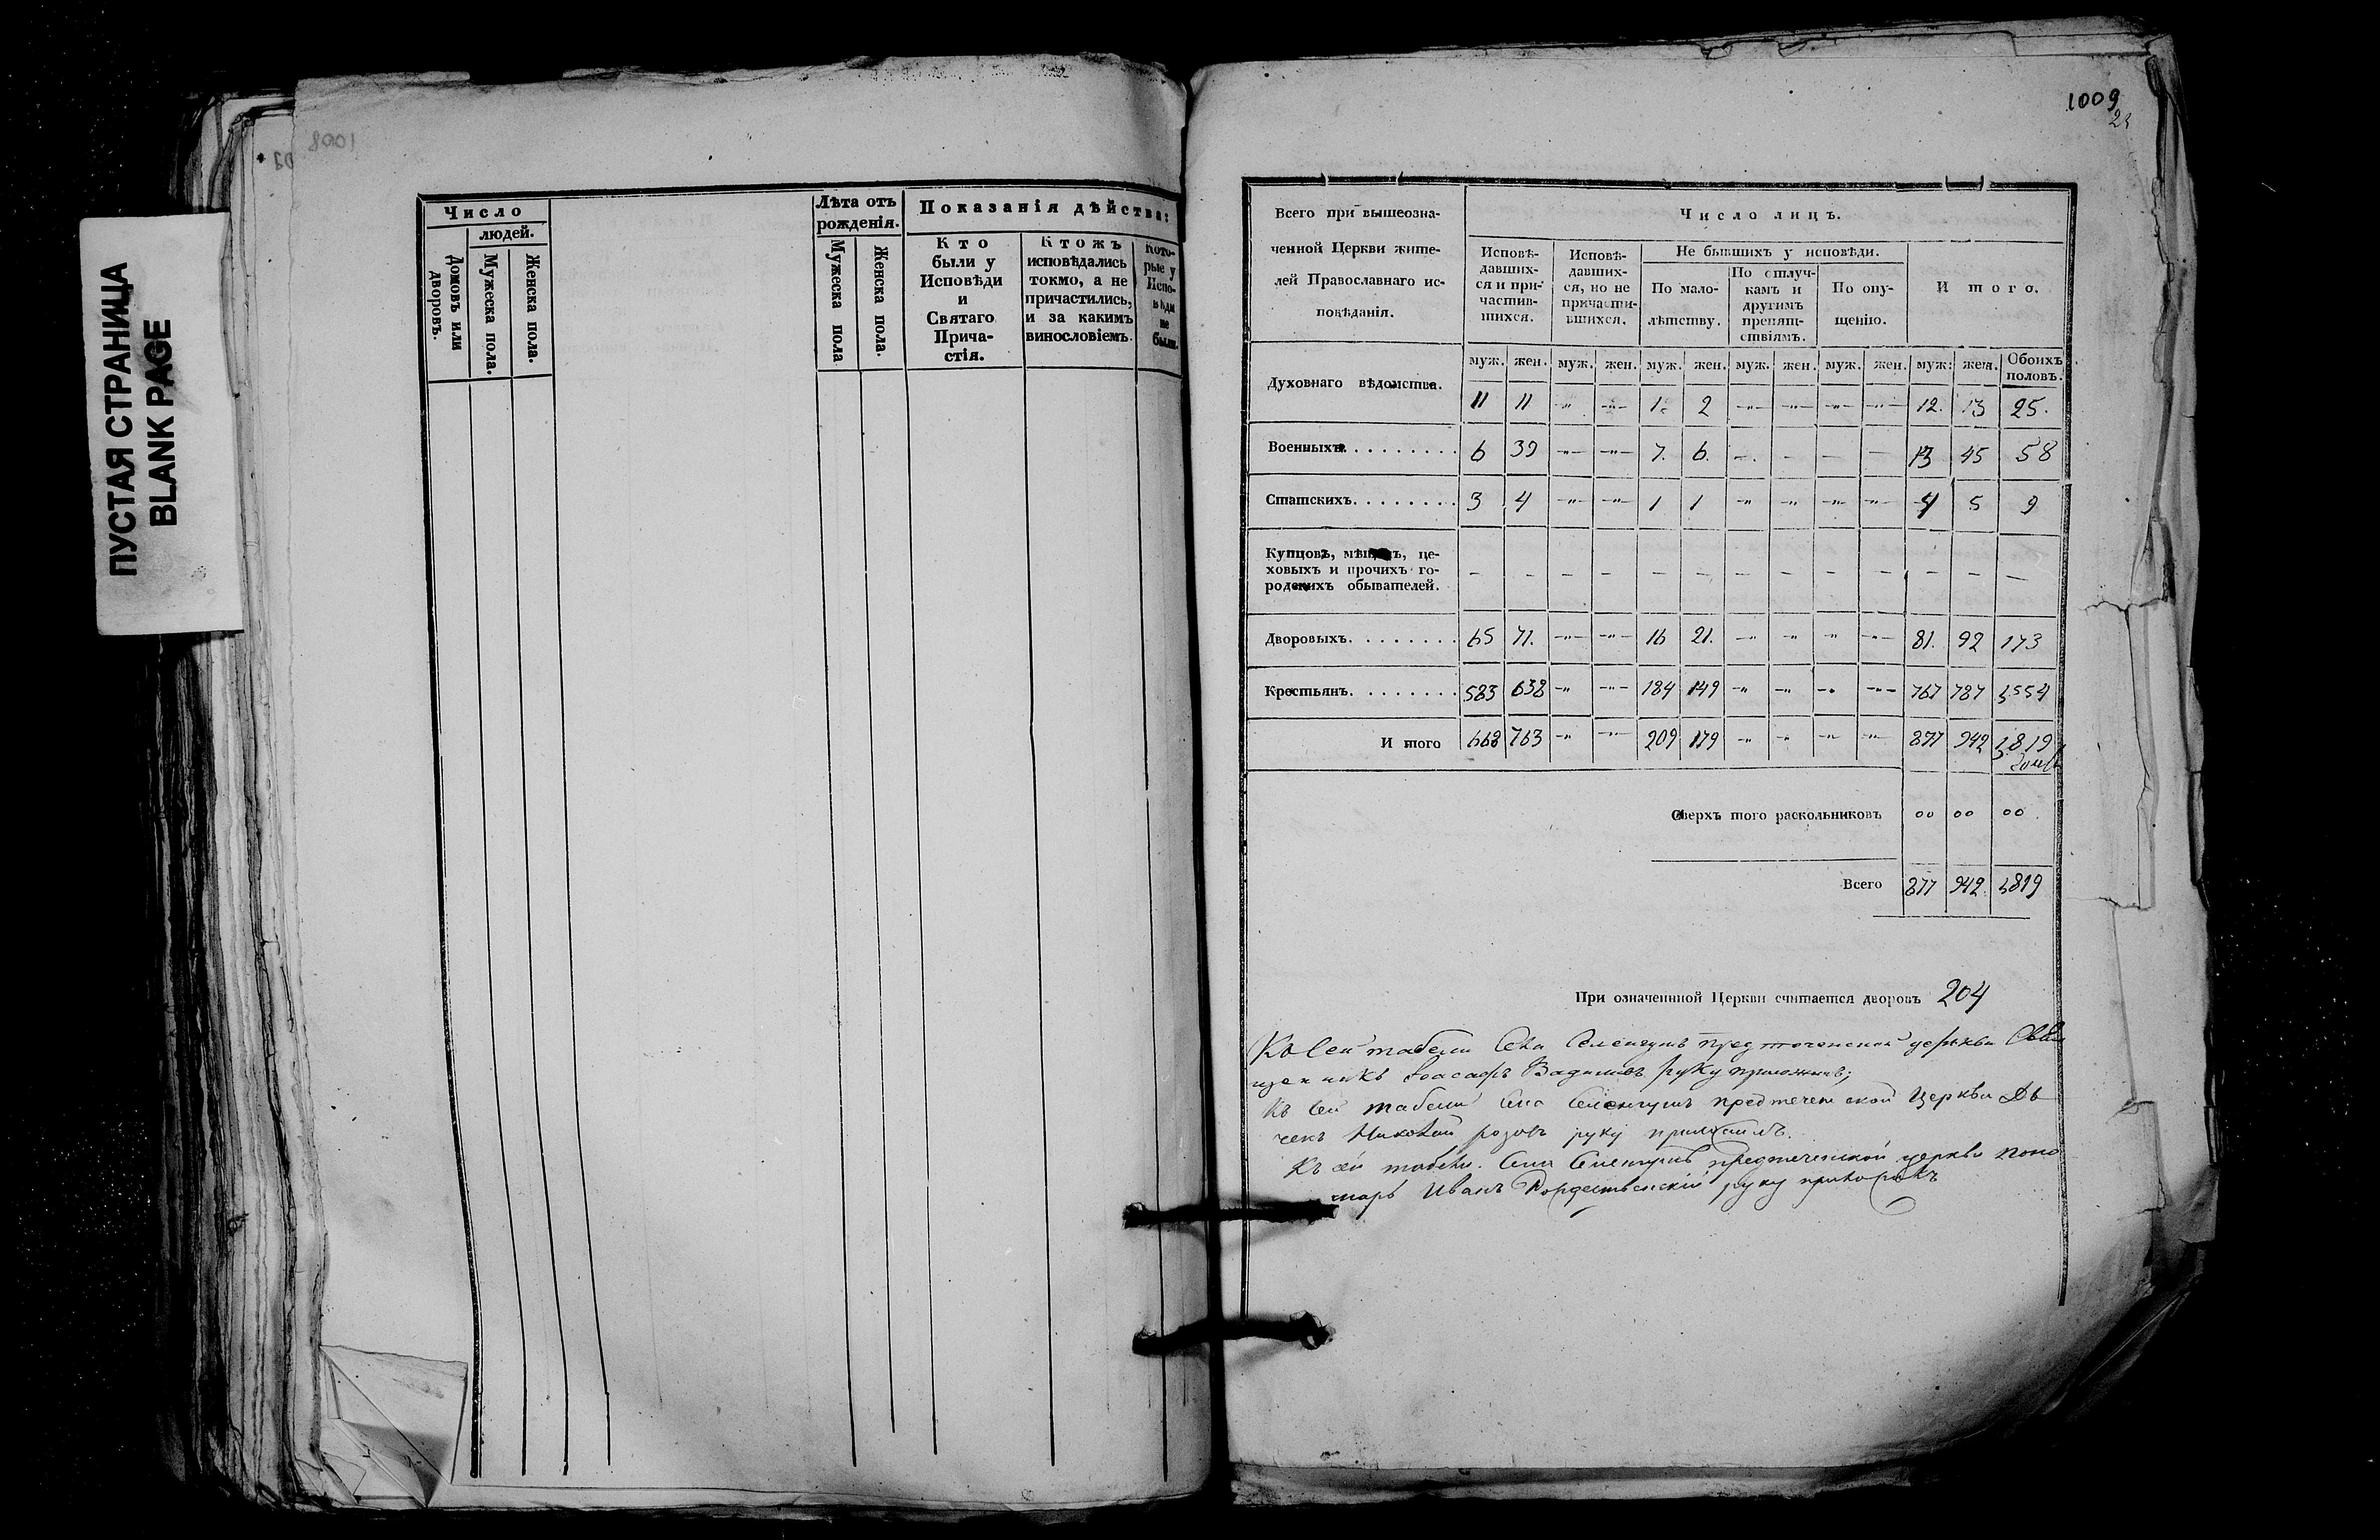 ПУСТАЯ СТРАНИЦА
BLANK PAGE
1008
Число
людей.
Домовъ или дворовъ.
Мужеска пола.
Женска пола.
Лѣта отъ
рожденія.
Мужеска пола
Женска пола.
Показанія дѣйства:
Кто
были у
Исповѣди
и
Святаго
Прича-
стія.
Ктожъ
исповѣдались
токмо, а не
причастились,
и за какимъ
винословіемъ.
Кото-
рые у
Испо-
вѣди
не
были.
1009
Всего при вышеозна-
ченной Церкви жите-
лей Православнаго ис-
повѣданія.
Число лицъ.
Исповѣ-
давших-
ся и при-
частив-
шихся.
Исповѣ-
давших-
ся, но не
причасти-
вшихся.
Не бывшихъ у исповѣди.
По мало-
лѣтству.
По отлуч-
камъ и
другимъ
препят-
ствіямъ.
По опу-
щенію.
И того.
муж. жен. муж. жен. муж. жен. муж. жен. муж. жен. муж. жен. Обоихъ половъ.
Духовнаго вѣдомства. 11 11 -"- -"- 1. 2 -"- -"- -"- -"- 12. 13 25.
Военныхъ. . . . . . . . 6 39 -"- -"- 7. 6. - - - - 13 45 58
Статскихъ. . . . . . . . 3 4 -"- -"- 1 1 -"- -"- -"- -"- 4 5 9
Купцовъ, мѣщанъ, це-
ховыхъ и прочихъ го-
родскихъ обывателей. - - - - - - - - - - - - -
Дворовыхъ. . . . . . . . 65 71. -"- -"- 16 21. -"- -"- -"- -"- 81. 92 173
Крестьянъ. . . . . . . . 583 638 -"- -"- 184 149 -"- -"- -"- -"- 767 787 1554
И того 668 763 -"- -"- 209 179 -"- -"- -"- -"- 877 942 1819
Сверхъ того раскольниковъ 00 00 00.
Всего 877 942 1819
При означенной Церкви считается дворовъ 204
Къ сей табели Села предтеченской церкви Свя
щенникъ Іоасафъ руку приложилъ;
Къ сей табели Села предтеченской Церкви Дь
чекъ Николай розовъ руку приложилъ.
Къ сей табели Села предтеченской церкви поно
марь Иванъ Рождественскій руку приложилъ